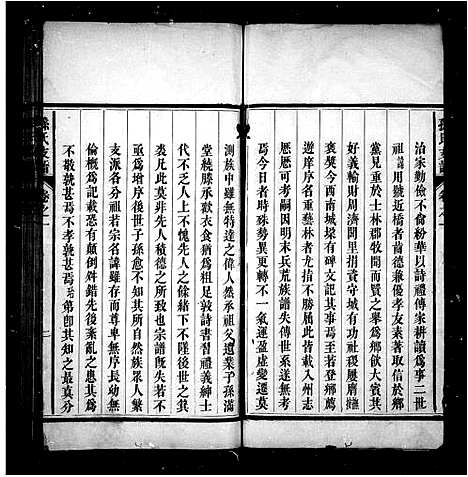 治家勤儉不倫紛華以詩禮傳家耕讀爲事二世
祖諱用號近橋者齒德兼優孝友素著取信於鄉
黨見重於士林郡牧聞而賢之舉爲鄉飲大賓其
好義輸財周濟閭里捐資守城有功社稷屢膺
褒獎今西南城壕有碑文記其事焉至若登鄉薦
遊庠序名重藝林者尤指不勝屈此皆載入州志
歷歷可考嗣因明末兵荒族譜失傳世系遂無考
焉今日者時殊勢異更轉不一氣運盈虛變遷莫
測族中雖無特達之偉人然承祖父遺業子孫滿
堂繞膝承歡衣食猶爲粗足敦詩書習禮義紳士
代不乏人上不愧先人之餘緒下不隳後世之箕
裘凡此莫非先人積德之所致也宗譜旣失若不
重爲增序後世子孫愈不知其所自然族眾人繁
支派各分祖若宗名諱雖存而尊卑無序長幼無
倫概爲記載恐有顛倒舛錯先後紊亂之患其爲
不敬孰甚焉不孝孰甚焉兹第卽其知之最真分
孫氏支譜
卷之一